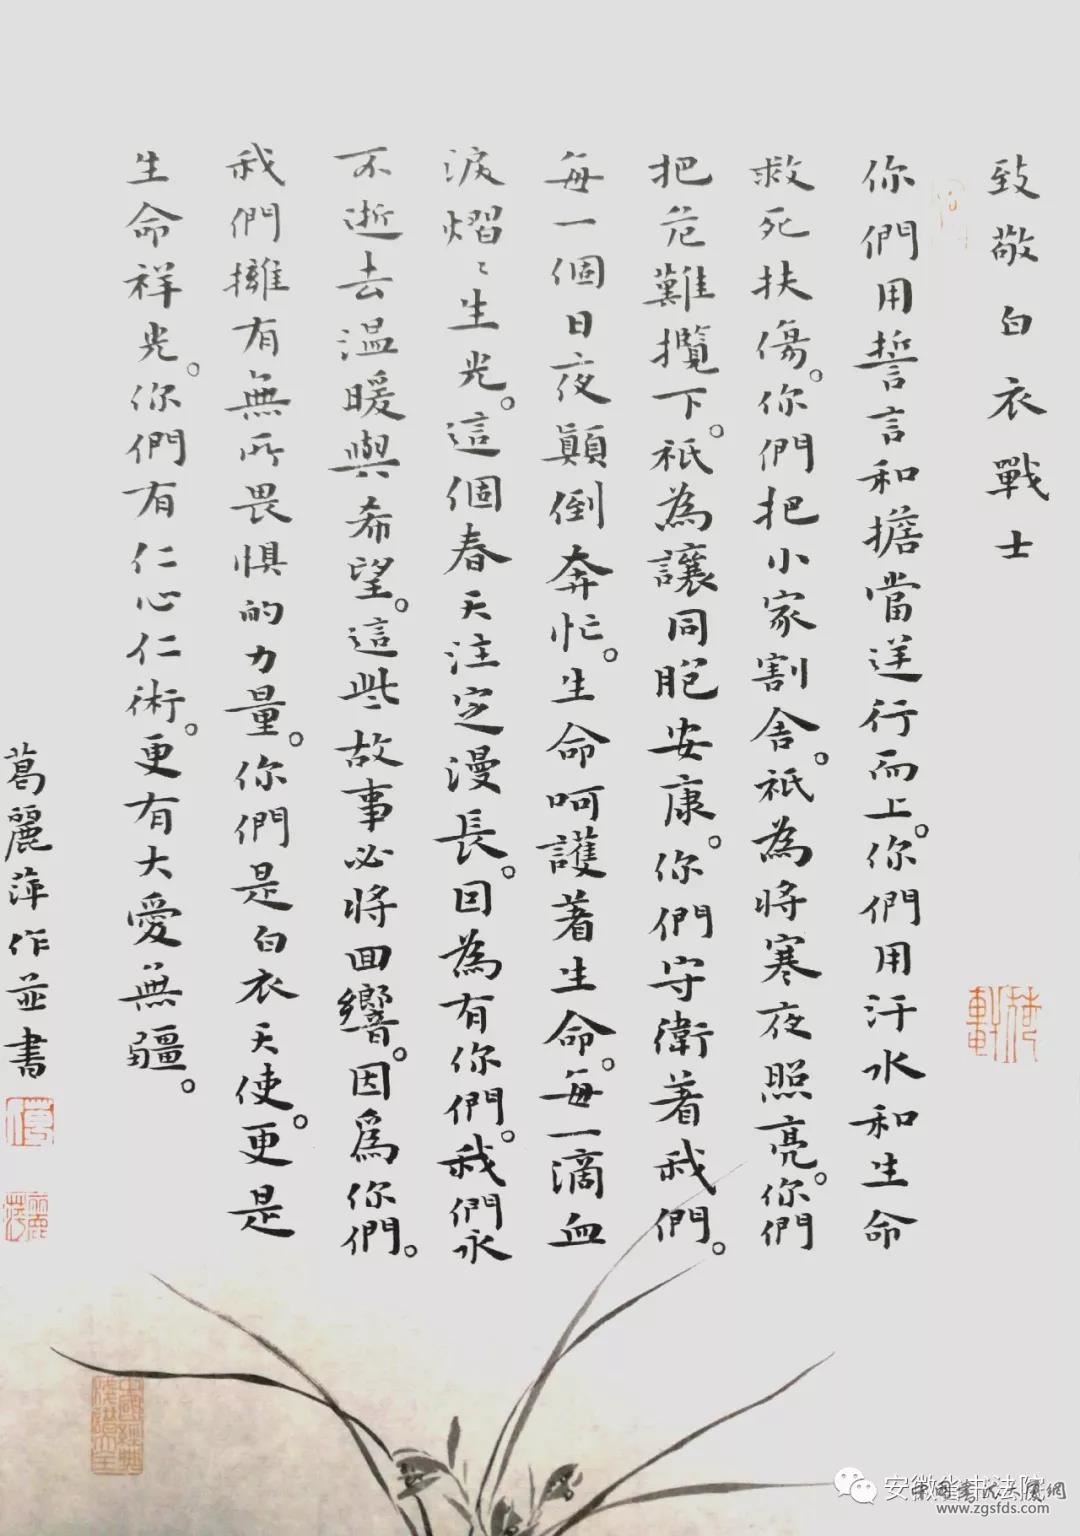 致敬白衣戰士
你們用誓言和擔當逆行而上。你們用汗水和生命
救死扶傷。你們把小家割舍。祇為將寒夜照亮。你們
把危難攬下。祇為讓同胞安康。你們守衛着我們。
每一個日夜顛倒奔忙。生命呵護着生命。每一滴血
淚熠〻生光。這個春天注定漫長。因為有你們。我們永
不逝去温暖與希望。這些故事必將回響。因為你們。
我們擁有無所畏懼的力量。你們是白衣天使。更是
生命祥光。你們有仁心仁術。更有大愛無疆。
葛麗萍作並書
安徽省书法院
www.zgsfds.com